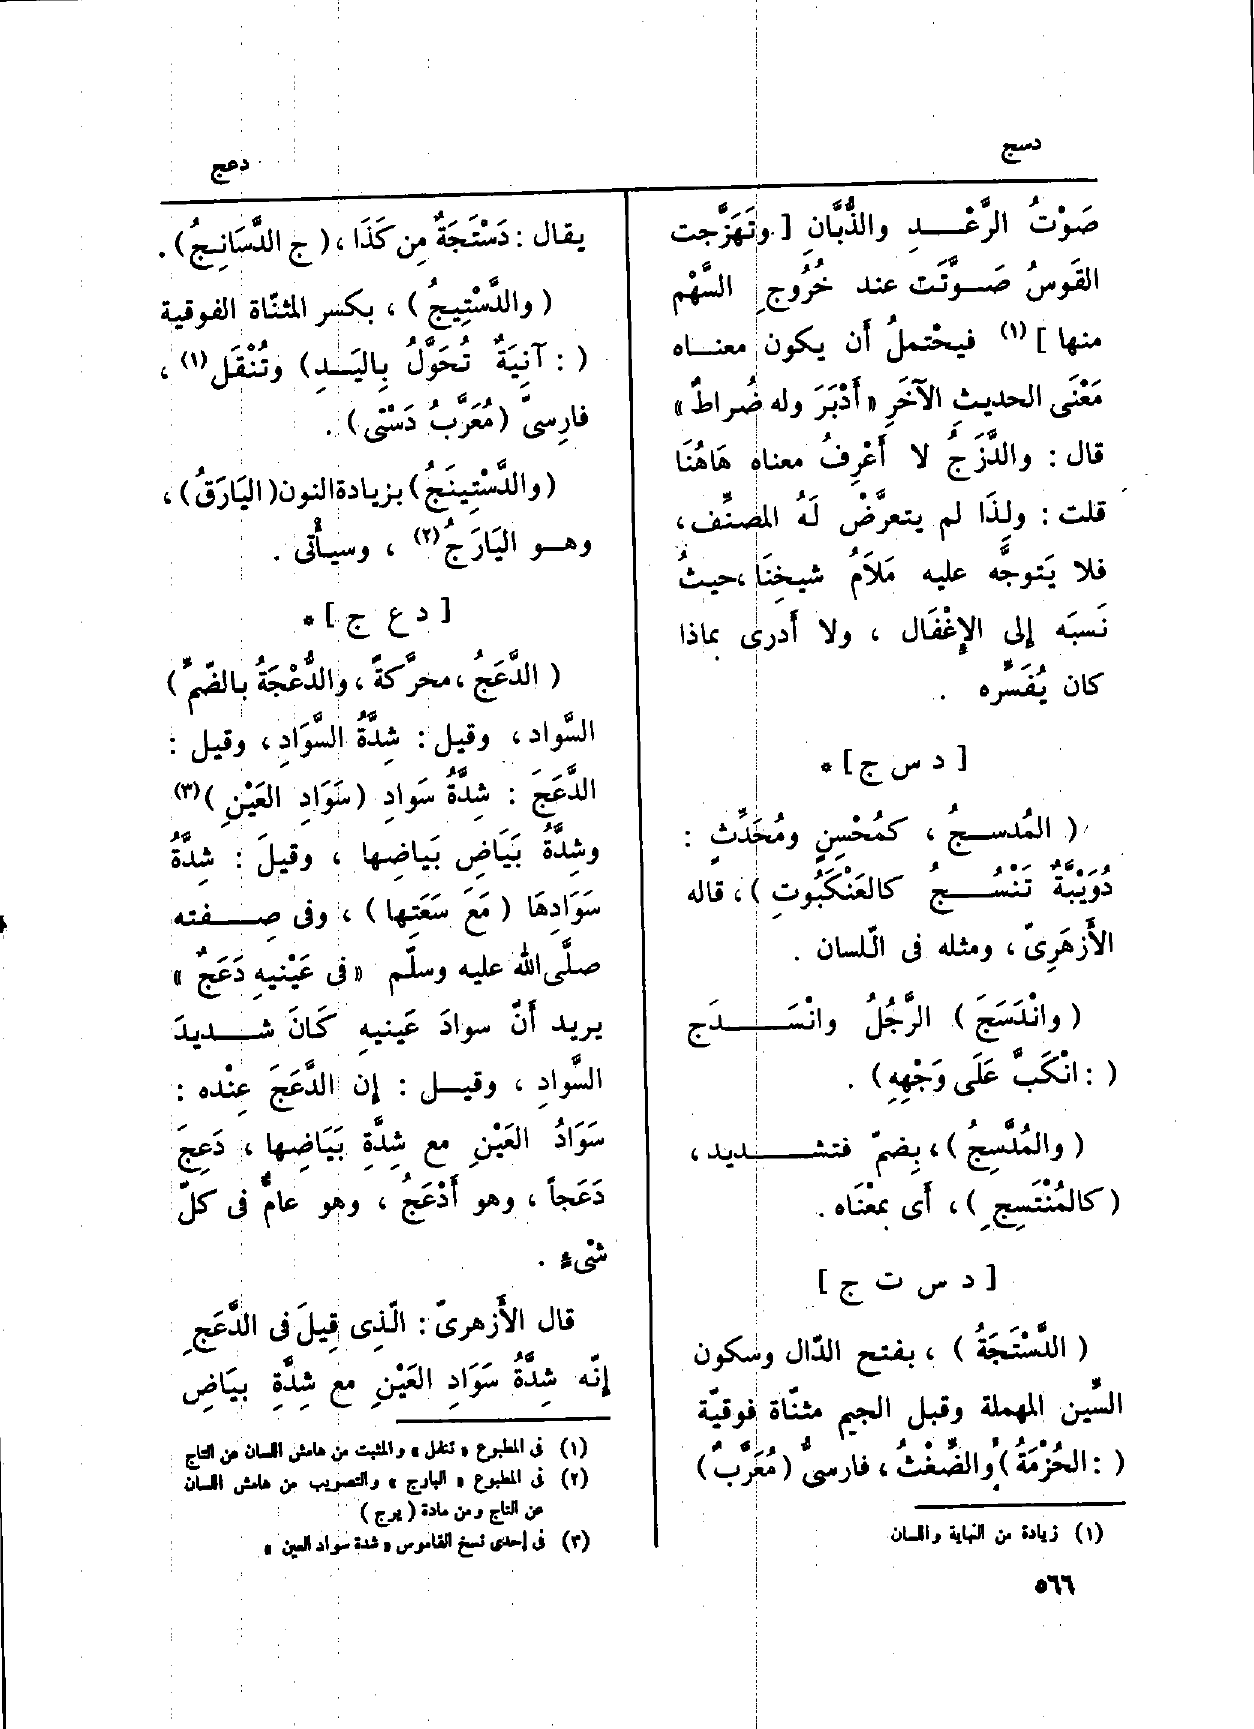 دسج
دعج
صَوْتُ الرَّعْـــدِ والذُّبَّانِ [ وتَهَزَّجت
القَوسُ صَــوَّتَت عند خُرُوجِ السَّهْم
منها ] (١) فيحْتملُ أَن يكون معنــاه
مَعْنَى الحديثِ الآخَرِ « أَدْبَرَ وله ضُراطٌ »
قال : والدَّزَجُ لا أَعْرِفُ معناه هَاهُنَا
قلت : ولِذَا لم يتعرَّضْ لَهُ المصنِّف ،
فلا يَتوجَّه عليه مَلَامُ شيخِنَا ، حيثُ
نَسبَه إلى الإِغْفَال ، ولا أَدرى بماذا
كان يُفَسِّره .
[ د س ج ] *
( المُدسـجُ ، كمُحْسِنٍ ومُحَدِّثٍ :
دُوَيْبَّةٌ تَنْسُـــجُ كالعَنْكَبُوتِ ) ، قاله
الأَزهَرِىّ ، ومثله فى اللّسان .
( وانْدَسَجَ ) الرَّجُلُ وانْسَــــدَج
( : انْكَبَّ عَلَى وَجْهِهِ ) .
( والمُدَّسِجُ ) ، بِضمّ فتشــــديد ،
( كالمُنْتَسِجِ ) ، أَى بمعْنَاه .
[ د س ت ج ]
( الدَّسْتَجَةُ ) ، بفتح الدّال وسكون
السِّين المهملة وقبل الجيم مثنّاة فوقيّة
( : الحُزْمَةُ ) والضِّغْثُ ، فارسىٌّ ( مُعَرَّبٌ )
(١) زيادة من النهاية واللسان
٥٦٦
يقال : دَسْتَجَةٌ مِن كَذَا ، ( ج الدَّسَانِـجُ ) .
( والدَّسْتِيجُ ) ، بكسر المثنّاة الفوقية
( : آنِيَةٌ تُحَوَّلُ بِاليَــدِ ) وتُنْقَل (١) ،
فارِسىّ ( مُعَرَّبُ دَسْتى ) .
( والدَّسْتِينَجُ ) بزيادة النون ( اليَارَقُ ) ،
وهــو اليَارَجُ (٢) ، وسيأْتى .
[ د ع ج ] *
( الدَّعَجُ ، محرَّكةً ، والدُّعْجَةُ بالضّمّ )
السَّواد ، وقيل : شِدَّةُ السَّوَادِ ، وقيل :
الدَّعَجَ : شِدَّةُ سَوادِ ( سَوَادِ العَيْنِ ) (٣)
وشِدَّةُ بَيَاضِ بَياضِها ، وقيلَ : شِدَّةُ
سَوَادِهَا ( مَعَ سَعَتِها ) ، وفى صِـــفته
صلَّى الله عليه وسلّم « فى عَيْنيهِ دَعَجٌ »
يريد أَنَّ سوادَ عَينيهِ كَانَ شــديدَ
السَّوادِ ، وقيــل : إن الدَّعَجَ عِنْده :
سَوَادُ العَيْنِ مع شِدَّةِ بَيَاضِها ، دَعِجَ
دَعَجاً ، وهو أَدْعَجُ ، وهو عامٌّ فى كلّ
شىْءٍ .
قال الأَزهرىّ : الّذِى قِيلَ فى الدَّعَجِ
إِنّه شِدَّةُ سَوَادِ العَيْنِ مع شِدَّةِ بيَاضِ
(١) فى المطبوع « تنفل » والمثبت من هامش اللسان عن التاج
(٢) فى المطبوع « البارج » والتصويب من هامش اللسان
عن التاج ومن مادة ( يرج )
(٣) فى إحدى نسخ القاموس « شدة سواد العين »